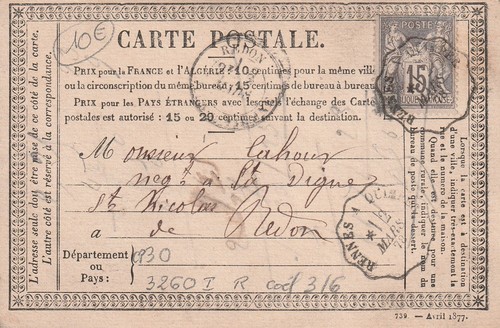 10€
CARTE POSTALE.
REDON
PRIX pour la FRANCE et l'ALGÉRIE : 10 centimes pour la même ville
ou la circonscription du même bureau ; 15 centimes de bureau à bureau.
PRIX pour les PAYS ÉTRANGERS avec lesquels l'échange des Carte
postales est autorisé : 15 ou 20 centimes suivant la destination.
15
RENNES A
L'adresse seule doit être mise de ce côté de la carte.
L'autre côté est réservé à la correspondance.
Lorsque la carte est à destination
d'une ville, indiquer très-exactement la
rue et le numéro de la maison.
Quand elle est destinée pour une
commune rurale, indiquer le nom du
bureau de poste qui la dessert.
Monsieur Cahour
neg^t à la Digue
St Nicolas
a de Redon
RENNES A QUIMPER
21
MARS
78
Département
ou
Pays :
0930
3260 I R cad 3/6
739. — Avril 1877.